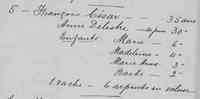 5 - François Cesar - - 35 ans
Anne Delestre - 30 "
Enfants Marie - 6 "
Madeleine - 4 "
Marie Anne - 3 "
- 2 "
1 vache - 6 arpents en valeur